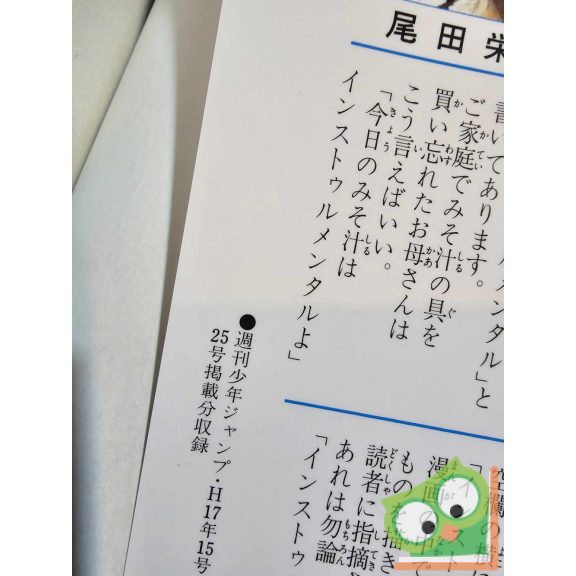 尾田栄
書いてあります。
ンタル」と
ご家庭でみそ汁の具を
買い忘れたお母さんは
こう言えばいい。
「今日のみそ汁は
インストゥルメンタルよ」
空欄の横
漫画の中で
ものを描き
読者に指摘
あれは勿論
「インストゥ
●週刊少年ジャンプ・H17年15号
25号掲載分収録